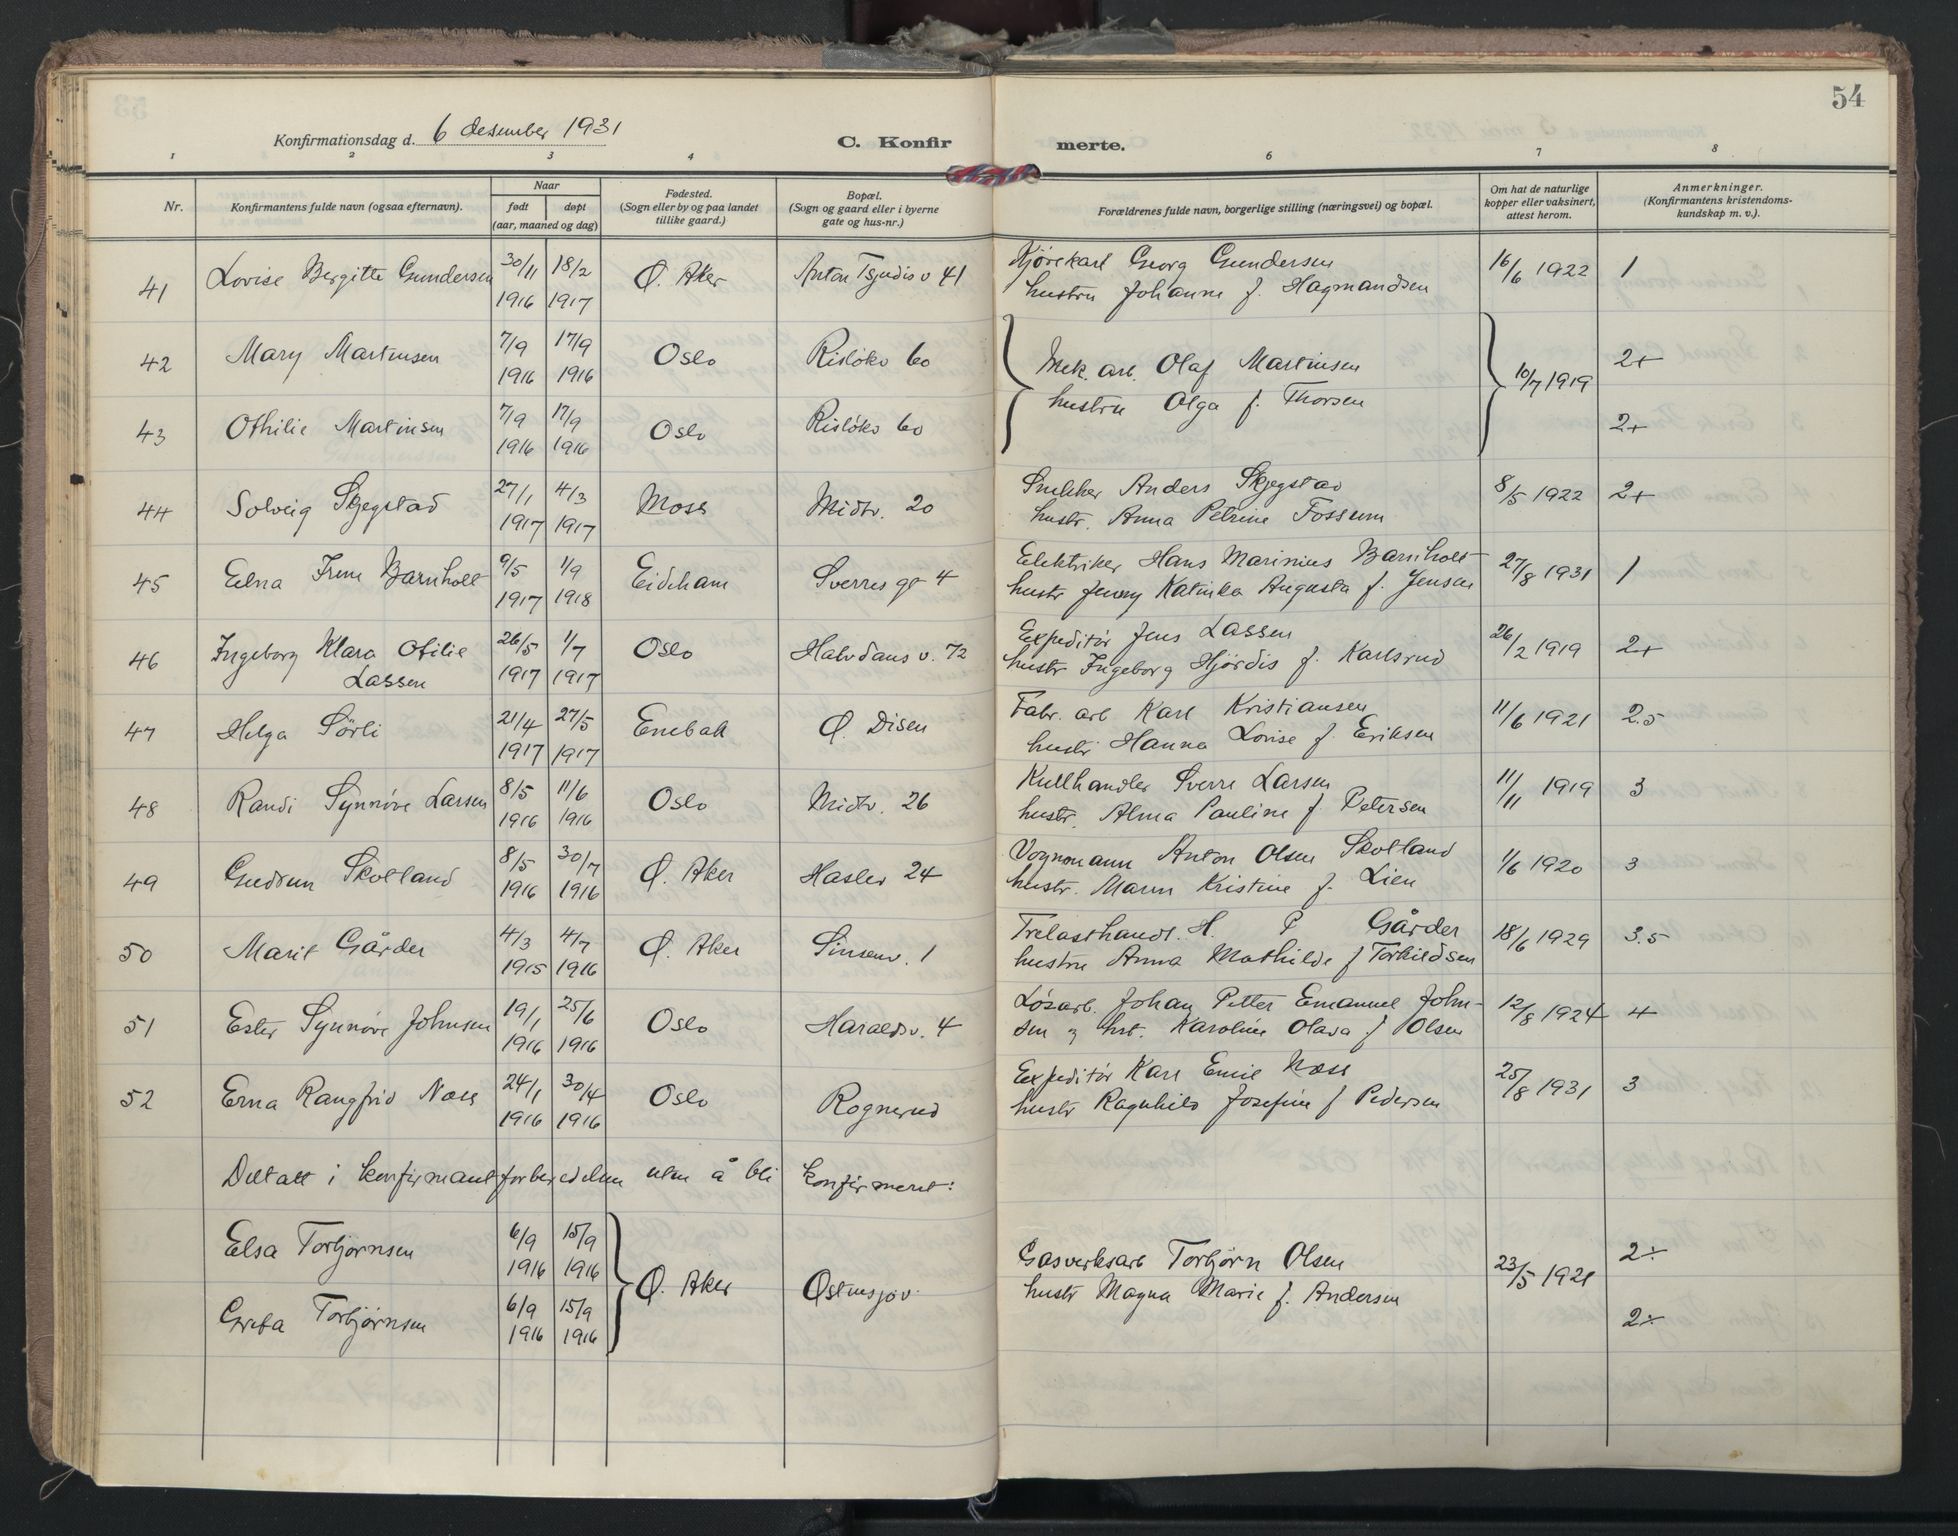 54
Konfirmationsdag d. 6 desember 1931
C. Konfirmerte.
1 2 3 4 5 6 7 8
Nr.
Konfirmantens fulde navn (ogsaa efternavn).
Naar
født døpt
(aar, maaned og dag)
Fødested.
(Sogn eller by og paa landet
tillike gaard.)
Bopæl.
(Sogn og gaard eller i byerne
gate og hus-nr.)
Forældrenes fulde navn, borgerlige stilling (næringsvei) og bopæl.
Om hat de naturlige
kopper eller vaksinert,
attest herom.
Anmerkninger.
(Konfirmantens kristendoms-
kundskap m. v.).
41 Lovise Bergitte Gundersen 30/11 1916 18/2 1917 Ø. Aker Anton v 41 Kjørekarl Georg Gundersen
hustru Johanne f. Hagmandsen 16/6 1922 1
42 Mary Martinsen 7/9 1916 17/9 1916 Oslo Risløkv 60 Mek. arb. Olaf Martinsen
hustru Olga f. Thorsen 10/7 1919 2+
43 Othilie Martinsen 7/9 1916 17/9 1916 Oslo Risløkv 60 2+
44 Solveig Skjegstad 27/1 1917 4/3 1917 Moss Midtv. 20 Snekker Anders Skjegstad
hustr. Anna Petrine Fossum 8/5 1922 2+
45 Edna Irene Barnholt 9/5 1917 1/9 1918 Eideham Sverres gt 4 Elektriker Hans Marinius Barnholt
hustr Jenny Katinka Augusta f. Jensen 27/8 1931 1
46 Ingeborg Klara Otilie
Lassen 26/5 1917 1/7 1917 Oslo Halvdans v. 72 Expeditør Jens Lassen
hustr Ingeborg Hjørdis f. Karlsrud 26/2 1919 2+
47 Helga Sørli 21/4 1917 27/5 1917 Enebak Ø. Disen Fabr. arb Karl Kristiansen
hustr Hanna Lovise f. Eriksen 11/6 1921 2.5
48 Randi Synnøve Larsen 8/5 1916 11/6 1916 Oslo Midtv. 26 Kullhandler Sverre Larsen
hustr. Alma Pauline f Petersen 11/11 1919 3
49 Gudrun Skotland 8/5 1916 30/7 1916 Ø. Aker Haslev 24 Vognmann Anton Olsen Skotland
hustr. Maren Kristine f. Lien 1/6 1920 3
50 Marit Gårder 4/3 1915 4/7 1916 Ø. Aker Sinsenv. 1 Trelasthandl. H. P Gårder
hustru Anna Mathilde f Torkildsen 18/6 1929 3.5
51 Ester Synnøve Johnsen 19/1 1916 25/6 1916 Oslo Haraldsv. 4 Løsarb. Johan Petter Emanuel John-
sen og hst. Karoline Olava f Olsen 12/8 1924 4
52 Erna Rangfrid Næss 24/1 1916 30/4 1916 Oslo Rognerud Expeditør Karl Emil Næss
hustr Ragnhild Josefine f Pedersen 25/8 1931 3
Deltatt i konfirmantforberedelsen uten å bli konfirmert:
Elsa Torbjørnsen 6/9 1916 15/9 1916 Ø. Aker Østensjøv. Gasverksarb Torbjørn Olsen
hustr Magna Marie f. Andersen 23/5 1921 2÷
Greta Torbjørnsen 6/9 1916 15/9 1916 2÷